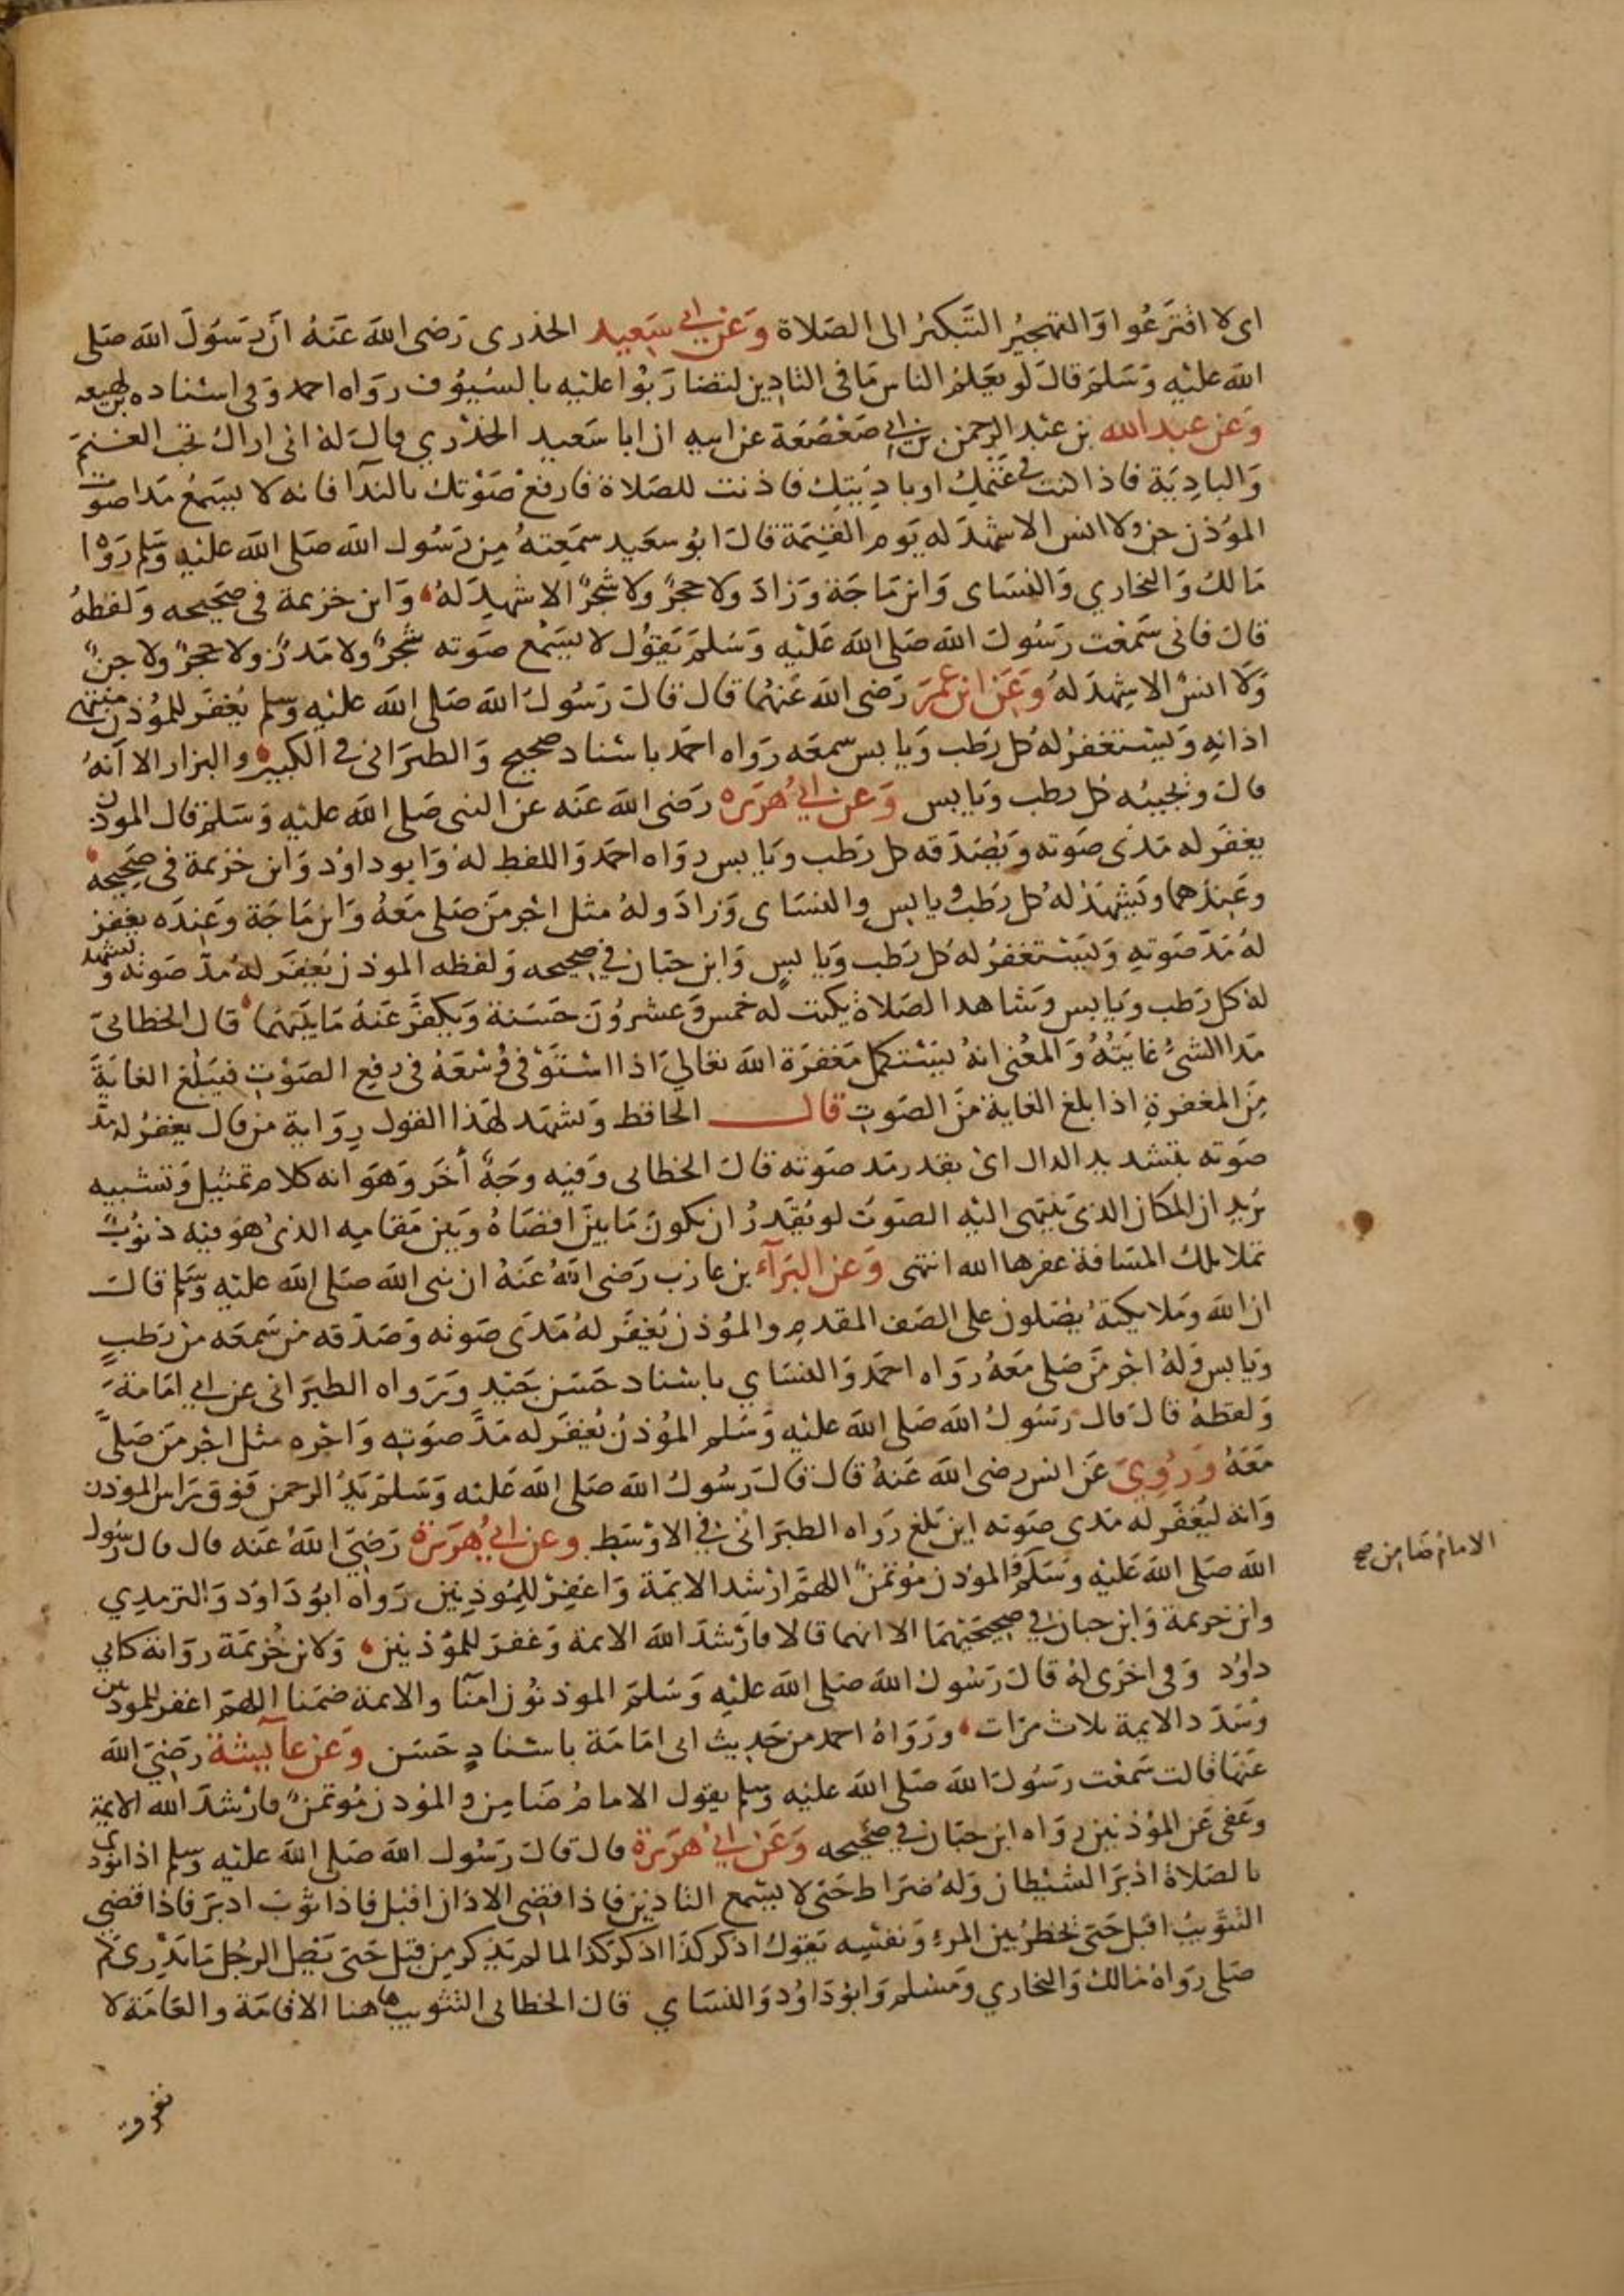 اى لا اقترعوا والتهجير التبكير الى الصلاة وعن ابي سعيد الخذرى رضى الله عنه ان رسول الله صلى
الله عليه وسلم قال لو يعلم الناس ما فى التاذين لتضاربوا عليه بالسيوف رواه احمد وفى اسناده ابن لهيعه
وعن عبد الله بن عبد الرحمن بن ابي صعصعة عن ابيه ان ابا سعيد الخذري قال له انى اراك تحب الغنم
والبادية فاذا كنت فى غنمك او باديتك فاذنت للصلاة فارفع صوتك بالندآ فانه لا يسمع مدا صوت
الموذن جن ولا انس الا شهد له يوم القيمة قال ابو سعيد سمعته من رسول الله صلى الله عليه وسلم رواه
مالك والبخاري والنساى وابن ماجة وزاد ولا حجر ولا شجر الا شهد له وابن خزيمة فى صحيحه ولفظه
قال فانى سمعت رسول الله صلى الله عليه وسلم يقول لا يسمع صوته شجر ولا مدر ولا حجر ولا جن
ولا انس الا شهد له وعن ابن عمر رضى الله عنهما قال قال رسول الله صلى الله عليه وسلم يغفر للموذن منتهى
اذانه ويستغفر له كل رطب ويابس سمعه رواه احمد باسناد صحيح والطبرانى فى الكبير والبزار الا انه
قال ويجيبه كل رطب ويابس وعن ابي هريره رضى الله عنه عن النبى صلى الله عليه وسلم قال الموذن
يغفر له مدى صوته ويصدقه كل رطب ويابس رواه احمد واللفظ له وابو داود وابن خزيمة فى صحيحه
وعندهما ويشهد له كل رطب ويابس والنساى وزاد وله مثل اجر من صلى معه وابن ماجة وعنده يغفر
له مد صوته ويستغفر له كل رطب ويابس وابن حبان في صحيحه ولفظه الموذن يغفر له مد صوته ويشهد
له كل رطب ويابس وشاهد الصلاة يكتب له خمس وعشرون حسنة ويكفر عنه ما بينهما قال الخطابى
مدا الشئ غايته والمعنى انه يستكمل مغفرة الله تعالى اذا استوفى وسعه فى رفع الصوت فيبلغ الغاية
من المغفرة اذا بلغ الغاية من الصوت قال الحافظ ويشهد لهذا القول رواية من قال يغفر له مد
صوته بتشديد الدال اى بقدر مد صوته قال الخطابى وفيه وجه أخر وهو انه كلام تمثيل وتشبيه
يريد ان المكان الذى ينتهى اليه الصوت لو يقدر ان يكون ما بين اقصاه وبين مقامه الذى هو فيه ذنوب
تملا تلك المسافة غفرها الله انتهى وعن البرآء بن عازب رضى الله عنه ان نبى الله صلى الله عليه وسلم قال
ان الله وملايكته يصلون على الصف المقدم والموذن يغفر له مدى صوته وصدقه من سمعه من رطب
ويابس وله اجر من صلى معه رواه احمد والنساي باسناد حسن جيد ورواه الطبرانى عن ابي امامة
ولفظه قال قال رسول الله صلى الله عليه وسلم الموذن يغفر له مد صوته واجره مثل اجر من صلى
معه وروي عن انس رضى الله عنه قال قال رسول الله صلى الله عليه وسلم يد الرحمن فوق راس الموذن
وانه ليغفر له مدى صوته اين بلغ رواه الطبرانى فى الاوسط وعن ابي هريرة رضى الله عنه قال قال رسول
الله صلى الله عليه وسلم والموذن موتمن اللهم ارشد الايمة واغفر للموذنين رواه ابو داود والترمدي
الامام ضامن صح
وابن خزيمة وابن حبان في صحيحيهما الا انهما قالا فارشد الله الايمة وغفر للموذنين ولابن خزيمة رواية كابي
داود وفى اخرى له قال رسول الله صلى الله عليه وسلم الموذنون امنآ والايمة ضمنا اللهم اغفر للموذنين
وسدد الايمة ثلاث مرات ورواه احمد من حديث ابى امامة باسناد حسن وعن عآيشة رضى الله
عنها قالت سمعت رسول الله صلى الله عليه وسلم يقول الامام ضامن والموذن موتمن فارشد الله الايمة
وعفى عن الموذنين رواه ابن حبان في صحيحه وعن ابي هريرة قال قال رسول الله صلى الله عليه وسلم اذا نودى
بالصلاة ادبر الشيطان وله ضراط حتى لا يسمع التاذين فاذا قضى الاذان اقبل فاذا ثوب ادبر فاذا قضى
التثويب اقبل حتى يخطر بين المرء ونفسه يقول اذكر كذا اذكر كذا لما لم يذكر من قبل حتى يضل الرجل ما يدرى كم
صلى رواه مالك والبخاري ومسلم وابو داود والنساي قال الخطابى التثويب هاهنا الاقامة والعامة لا